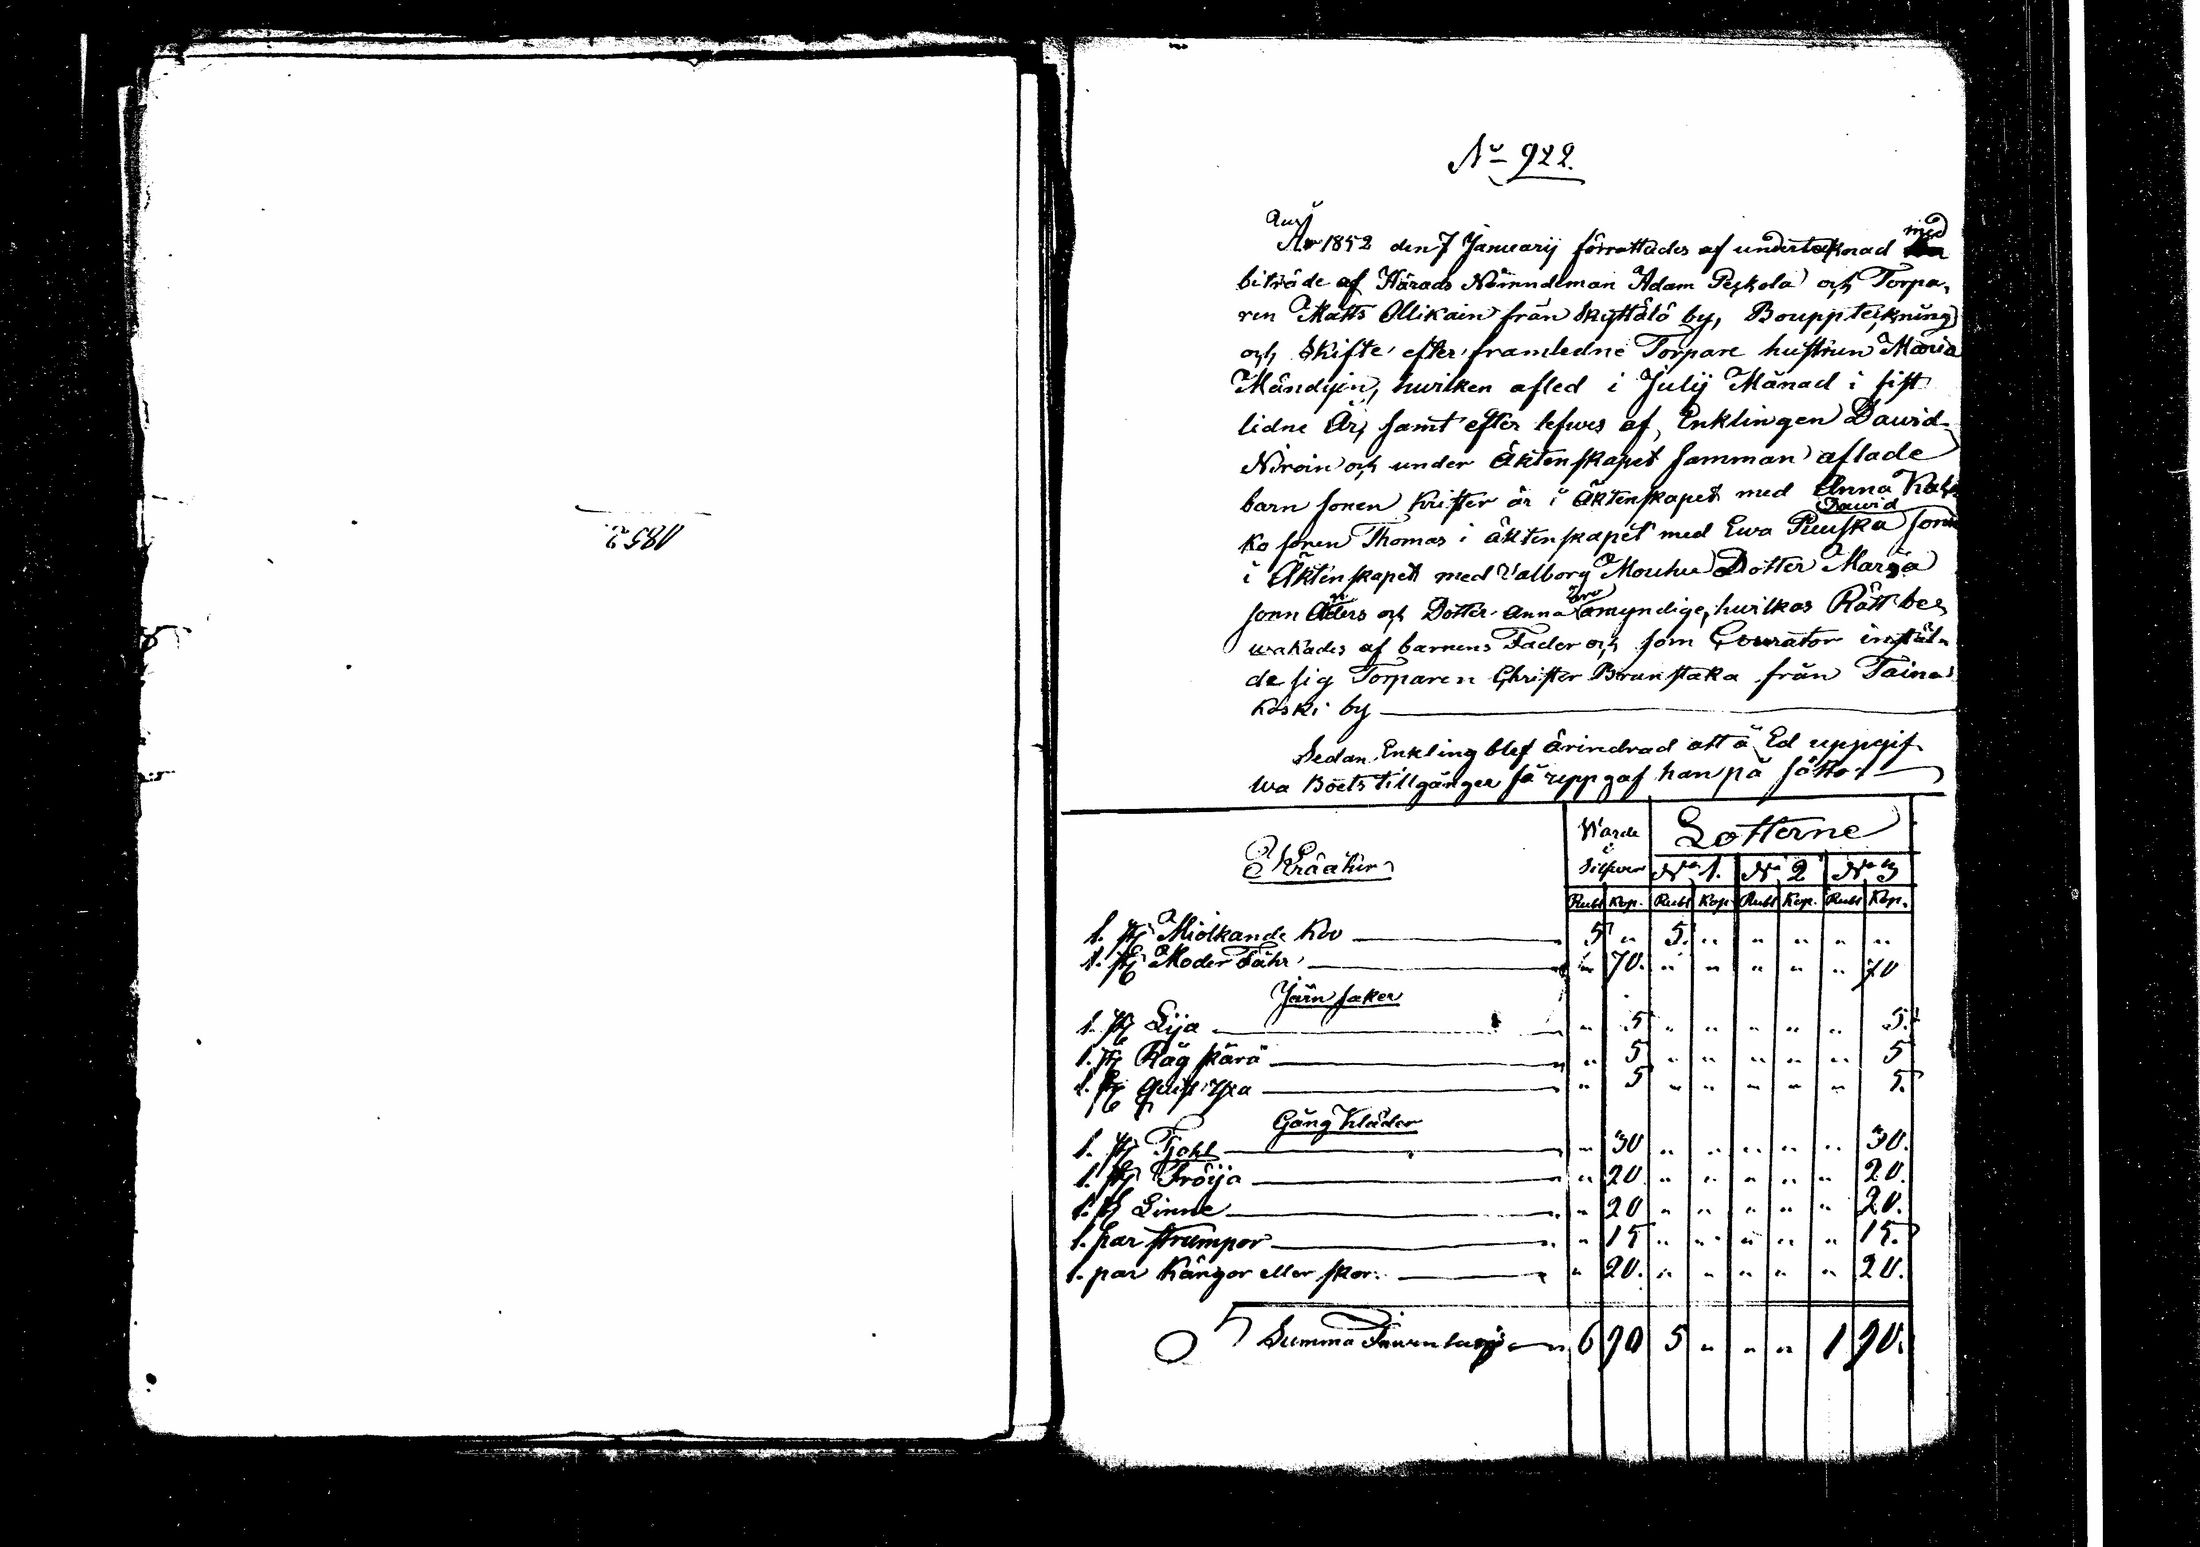 1852.
No 922.
År 1852 den 7 Januarij förrattades af undertecknad med
biträde af Härads Nämndeman Adam Peskola och Torpa-
ren Matts Ollikain från Skyttälö by, Bouppteckning
och Skifte efter framledne Torpare hustrun Maria
Mändyin, hwilken afled i Julij Månad i sist
lidne År, samt efter lefwes af, Enklingen Dawid
Niroin och under Äktenskapet samman aflade
barn sonen Krister är i Äktenskapet med Anna
ko sonen Thomas i äktenskapet med Ewa Ruuska sonen Dawid
i Äktenskapet med Valborg Mouhu Dotter Marja
sonn Anders och Dotter Anna omyndige, hwilkas Rätt be-
wakades af barnens Fader och som Courator instäl-
de sig Torparen Christer Brunstaka från Taina
koski by
Sedan Enkling blef ärindrad att å Ed uppgif-
wa Boets tillgångar så uppgaf han på sätt:
Kräatur
Wärde
i
Silfwer
Lotterne
No 1. No 2 No 3
Rubl Kop. Rubl Kop Rubl Kop. Rubl Kop.
1. st Miölkande Ko 5 " 5. " " " " "
1. st Moder Fåhr " 70. " " " " " 70
Järn saker
1. st Lija " 5 " " " " " 5.
1. st Råg skärä " 5 " " " " " 5
1. st " 5 " " " " " 5.
Gång Kläder
1. st Tjokl " 30 " " " " " 30.
1. st Tröija " 20 " " " " " 20.
1. st Linne " 20 " " " " " 20.
1. par strumpor " 15 " " " " " 15.
1. par Kängor eller skor " 20. " " " " " 20.
Summa Inventarij 6 70 5 " " " 1 70.